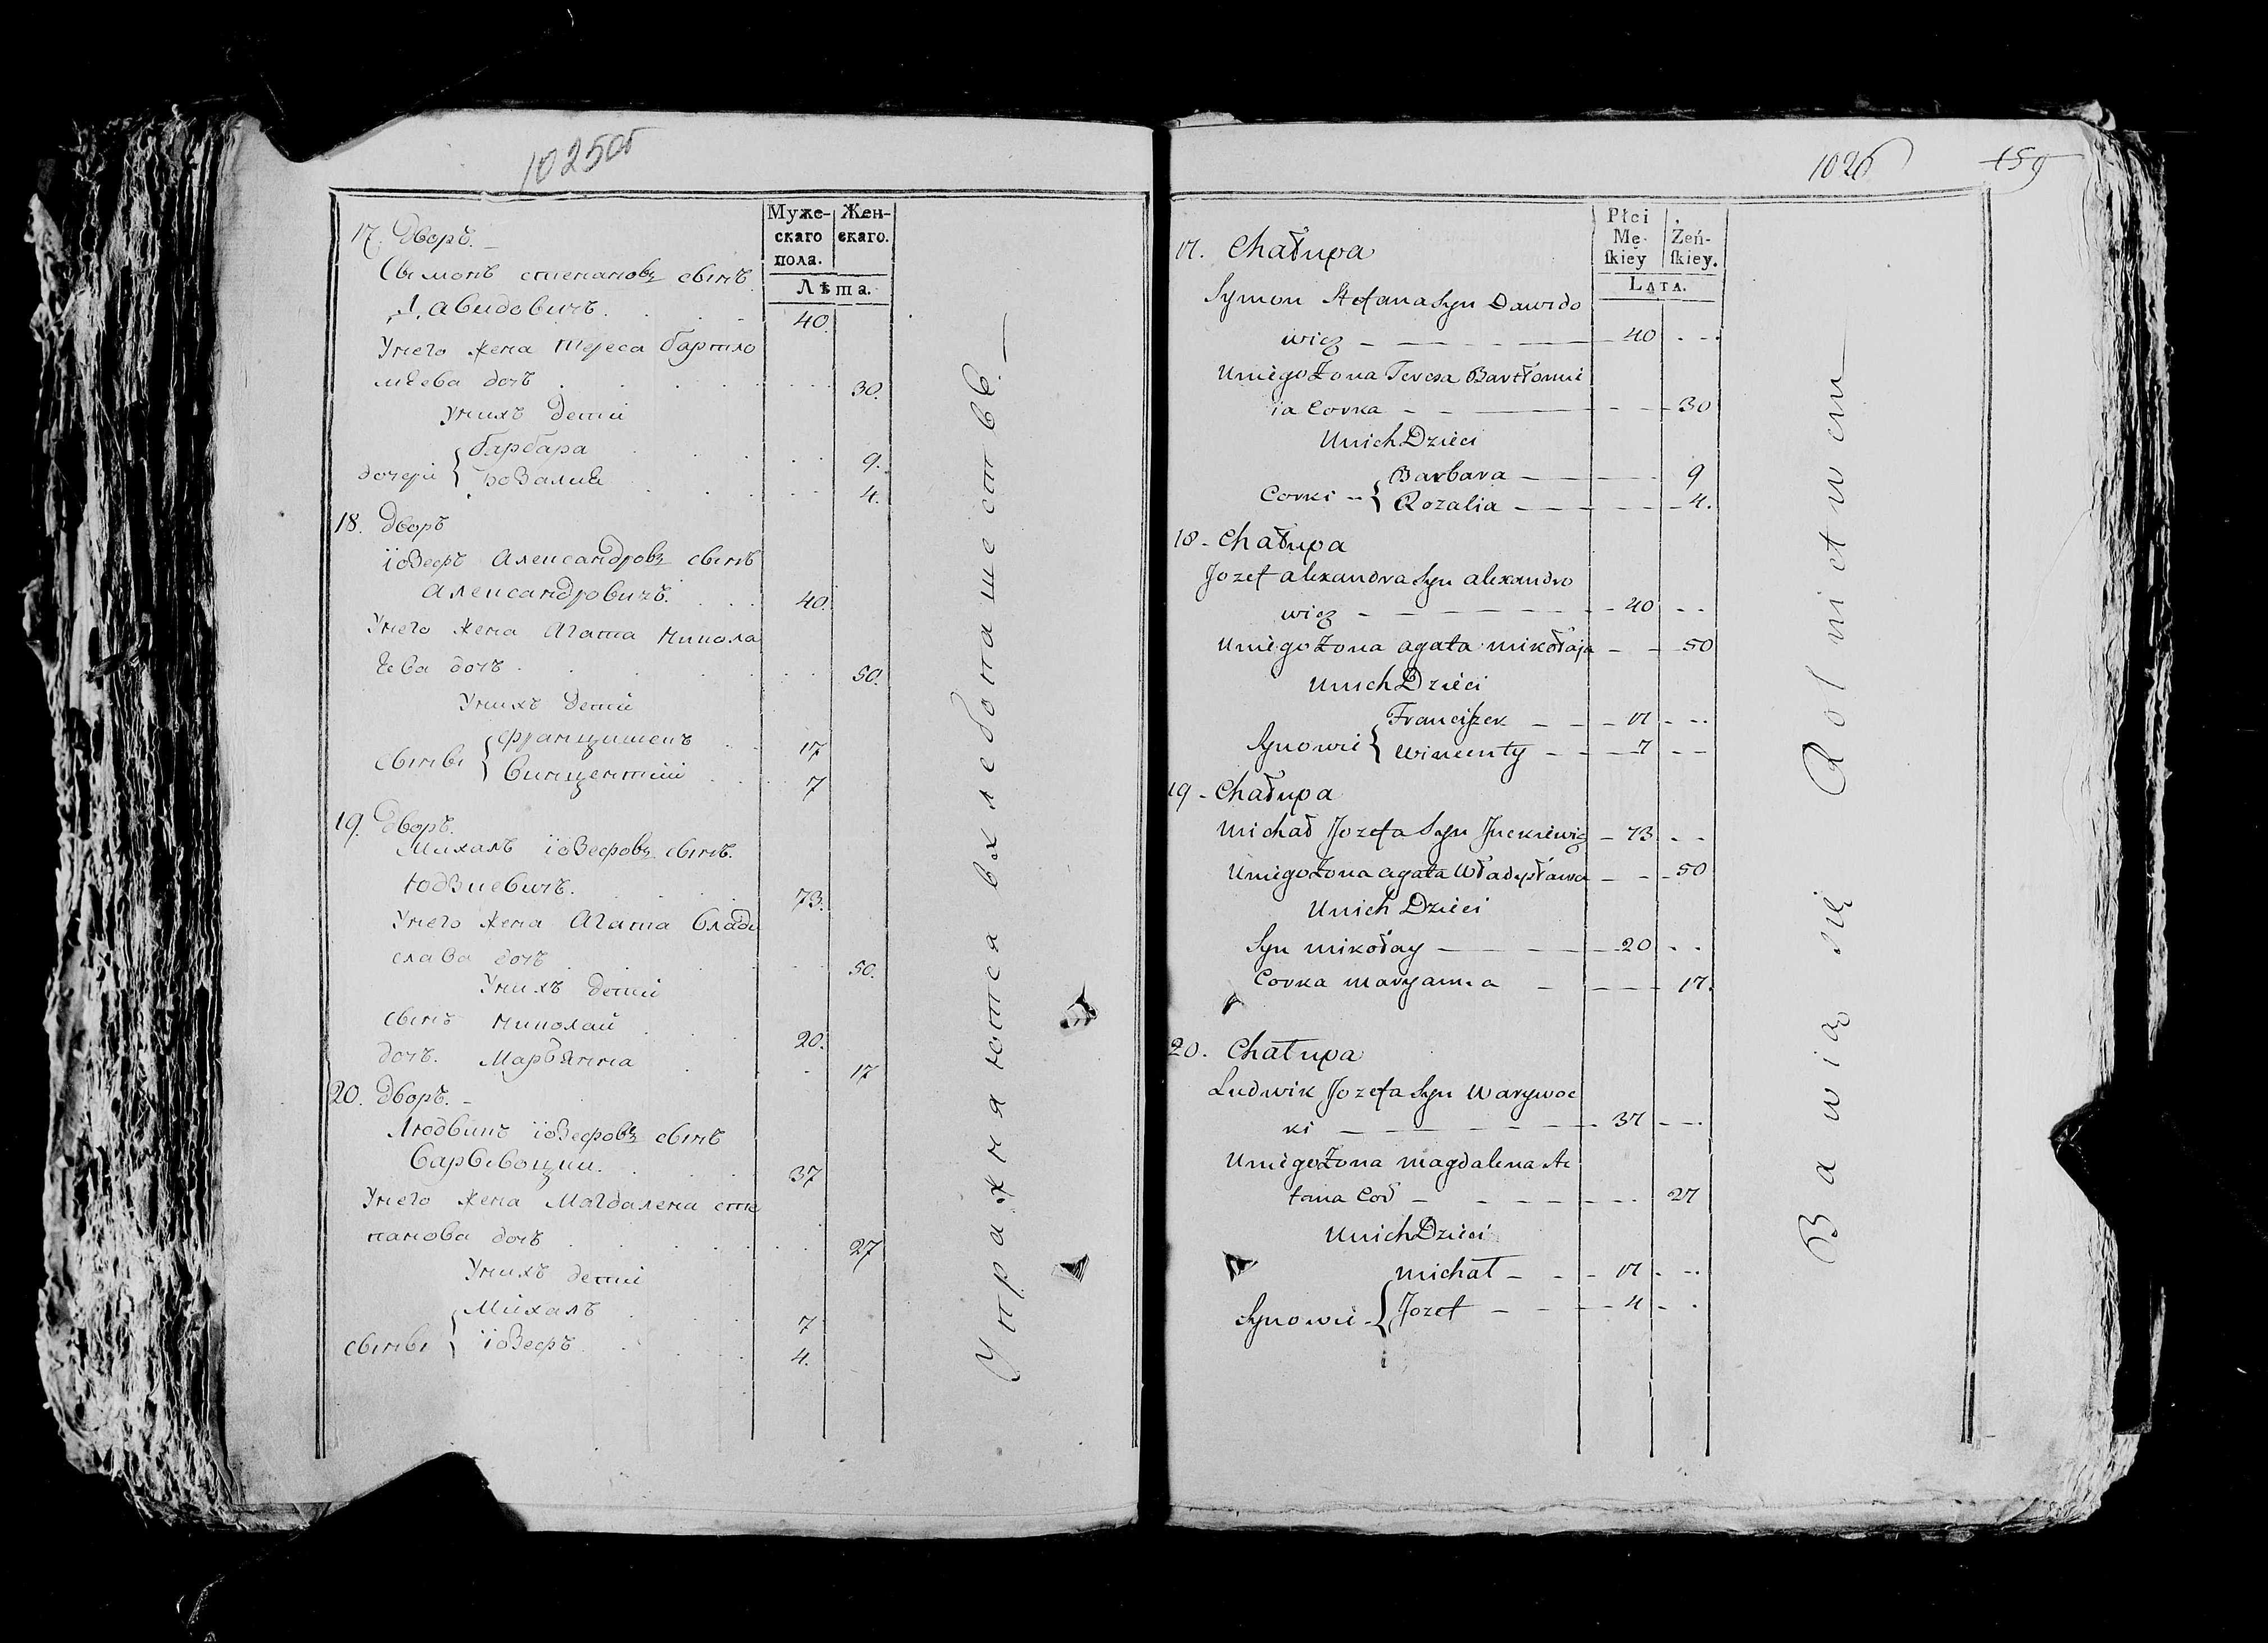 1025об
Муже-
скаго
пола.
Жен-
скаго.
Лѣта.
17. Дворъ.
Сымонъ степановъ сынъ
Давидовичъ. 40.
Унего жена Тереса бартло
мѣева дочь 30.
Унихъ дети
дочери { барбара 9.
Розалия 4.
18. Дворъ
іозефъ александровъ сынъ
александровичъ. 40.
Унего жена Агата Никола
ева дочь 50.
Унихъ дети
сыны { францишекъ 17
Винцентий 7
19. Дворъ.
Михалъ іозефовъ сынъ.
Юдзкевичъ. 73.
Унего жена Агата влади
слава дочь 50.
Унихъ дети
сынъ Николай 20.
дочь. Марьянна 17
20. Дворъ.
Людвикъ іозефовъ сынъ
Варывоцки. 37
Унего жена Магдалена сте
панова дочь 27
Унихъ дети
сыны { Михалъ 7
іозефъ 4.
Упражняются вхлебопашестве.
1026
159
Płci
Mę-
skiey
Żeń-
skiey.
Lata.
17. Chałupa
Symon Stefana Syn Dawido
wicz 40
Uniego Żona Teresa Bartłomie
ia Corka 30
Unich Dzieci
Corki { Barbara 9
Rozalia 4.
18 - Chałupa
Jozef alexandra Syn alexandro
wicz 40
Uniego Żona agata mikołaja 50
Unich Dzieci
Synowie { Franciszek 17
Wincenty 7
19 - Chałupa
Michał Jozefa Syn Juckiewicz 73
Uniego Żona agata Władysława 50
Unich Dzieci
Syn mikołay 20
Corka maryanna 17.
20. Chałupa
Ludwik Jozefa Syn Warywoc
ki 37
Uniego Żona magdalena Ste
fana Cor 27
Unich Dzieci
Synowie { Michał 17
Jozef 4
Bawią się Rolnictwem